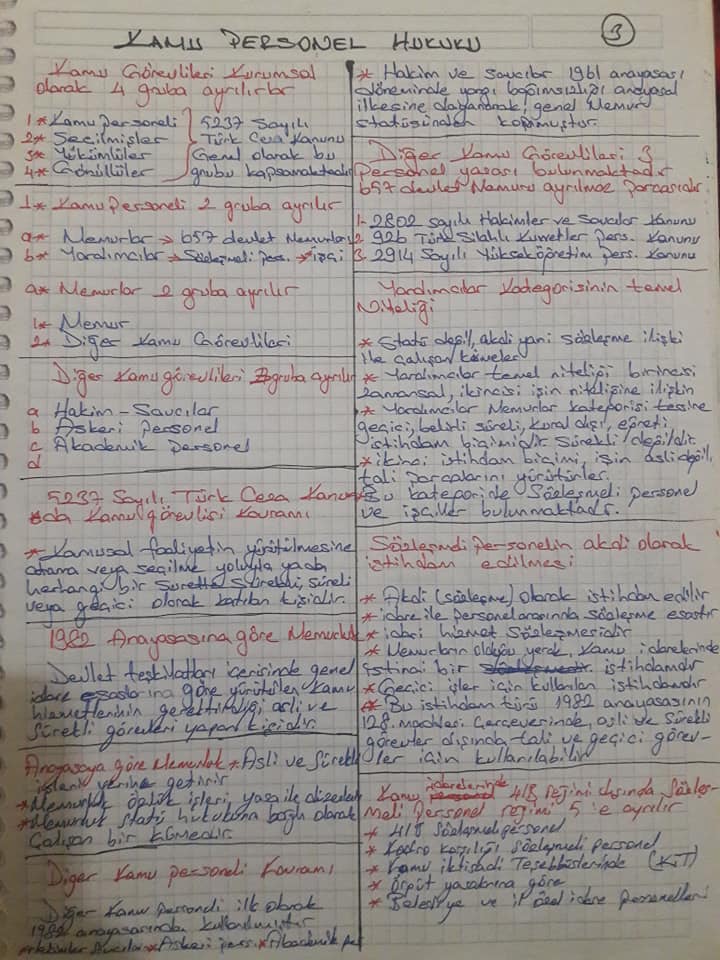 3
KAMU PERSONEL HUKUKU
Kamu Görevlileri Kurumsal
olarak 4 gruba ayrılırlar
1* Kamu personeli
2* Seçilmişler
3* Yükümlüler
4* Gönüllüler
5237 Sayılı
Türk Ceza Kanunu
Genel olarak bu
grubu kapsamaktadır
1* Kamu Personeli 2 gruba ayrılır
a* Memurlar → 657 devlet Memurları
b* Yardımcılar → Sözleşmeli Pers. → işçi
a* Memurlar 2 gruba ayrılır
1* Memur
2* Diğer Kamu Görevlileri
Diğer Kamu görevlileri 3 gruba ayrılır
a Hakim - Savcılar
b Askeri Personel
c Akademik Personel
d
5237 Sayılı Türk Ceza Kanun
*da Kamu görevlisi Kavramı
* Kamusal faaliyetin yürütülmesine
atama veya seçilme yoluyla yada
herhangi bir surette sürekli, süreli
veya geçici olarak katılan kişidir.
1982 Anayasasına göre Memurluk
Devlet teşkilatları içerisinde genel
idare esaslarına göre yürütülen kamu
hizmetlerinin gerektirdiği asli ve
sürekli görevleri yapan kişidir.
Anayasaya göre Memurluk * Asli ve Sürekli
işleri yerine getirir
* Memurluk özlük işleri, yasa ile düzenlenir
* Memurluk statü hukukuna bağlı olarak
Çalışan bir kümedir.
Diğer Kamu personeli Kavramı
Diğer Kamu Personeli ilk olarak
1982 anayasasından kullanılmıştır
* Askeri pers. * Akademik per
* Hakim ve savcılar 1961 anayasası
döneminde yargı bağımsızlığı anayasal
ilkesine dayanarak, genel Memur
statüsünden kopmuştur.
Diğer Kamu Görevlileri 3
personel yasası bulunmaktadır
657 devlet Memuru ayrılmaz parçasıdır.
1- 2802 sayılı Hakimler ve Savcılar Kanunu
2 926 Türk Silahlı Kuvvetler Pers. Kanunu
3 2914 Sayılı Yükseköğretim Pers. Kanunu
Yardımcılar Kategorisinin temel
Niteliği
* Statü değil, akdi yani sözleşme ilişki
ile çalışan kümeler
* Yardımcılar temel niteliği birincisi
zamansal, ikincisi işin niteliğine ilişkin
* Yardımcılar Memurlar kategorisi tersine
geçici, belirli süreli, kural dışı, eğreti
istihdam biçimidir Sürekli değildir
* ikinci istihdam biçimi, işin asli değil,
tali parçalarını yürütürler.
* Bu kategoride Sözleşmeli personel
ve işçiler bulunmaktadır.
Sözleşmeli Personelin akdi olarak
istihdam edilmesi
* Akdi (sözleşme) olarak istihdam edilir
* idare ile personel arasında sözleşme esastır
* idari hizmet sözleşmesidir
* Memurların olduğu yerde, Kamu idarelerinde
istinai bir istihdamdır
* Geçici işler için kullanılan istihdamdır
* Bu istihdam türü 1982 anayasasının
128. maddesi Çerçeverinde, asli ve sürekli
görevler dışında tali ve geçici görev-
ler için kullanılabilir
Kamu idarelerinde 4/B rejimi dışında Sözleş-
meli Personel rejimi 5'e ayrılır
* 4/B Sözleşmeli personel
* Kadro karşılığı sözleşmeli personel
* Kamu iktisadi Teşebbüslerinde (KİT)
* Örgüt yasalarına göre
* Belediye ve il özel idare personelleri